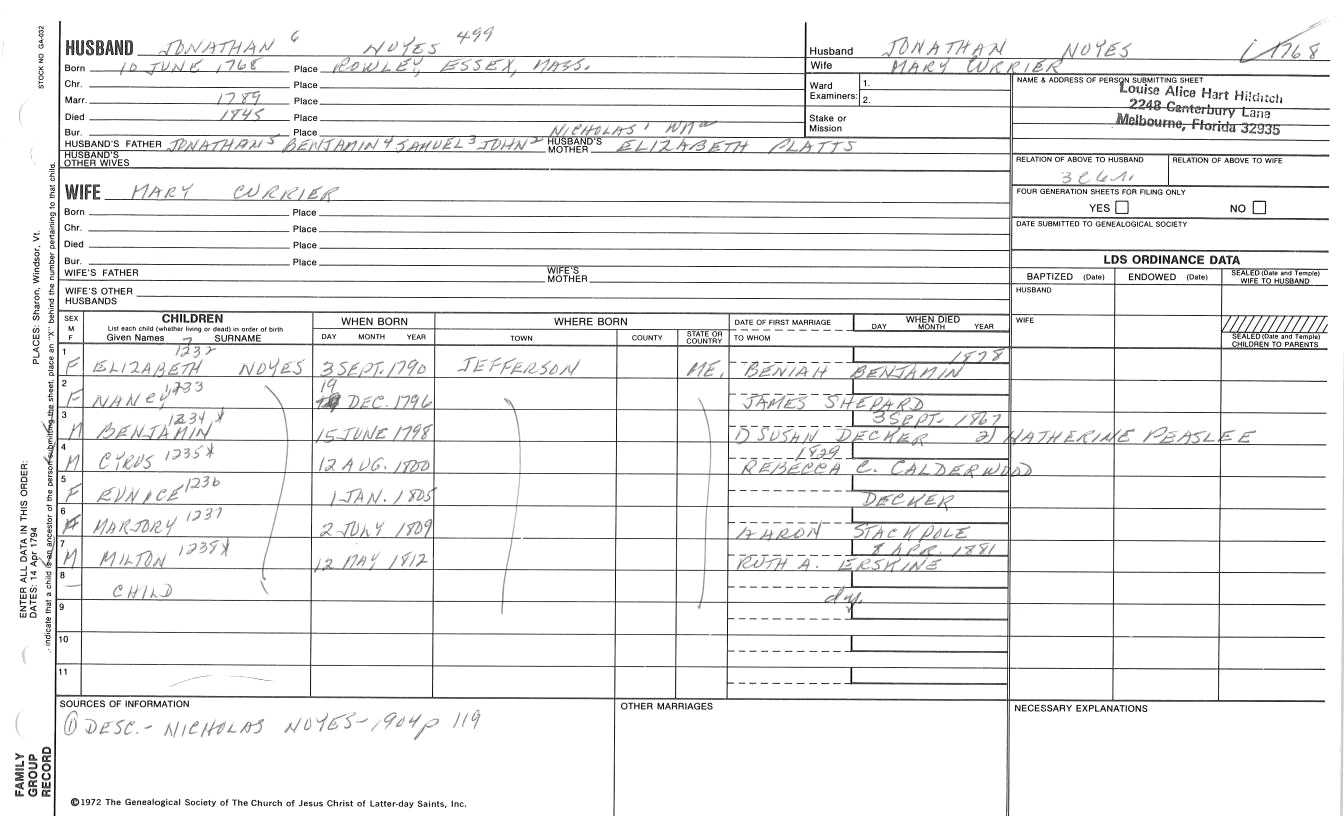 STOCK NO GA-032
HUSBAND JONATHAN 6 NOYES 499
Born 10 JUNE 1768 Place ROWLEY, ESSEX, MASS.
Chr. Place
Marr. 1789 Place
Died 1845 Place
Bur. Place NICHOLAS 1 WM
HUSBAND'S FATHER JONATHAN 5 BENJAMIN 4 SAMUEL 3 JOHN 2 HUSBAND'S MOTHER ELIZABETH PLATTS
HUSBAND'S OTHER WIVES
WIFE MARY CURRIER
Born Place
Chr. Place
Died Place
Bur. Place
WIFE'S FATHER WIFE'S MOTHER
WIFE'S OTHER HUSBANDS
Husband JONATHAN NOYES 1768
Wife MARY CURRIER
Ward Examiners: 1. 2.
Stake or Mission
NAME & ADDRESS OF PERSON SUBMITTING SHEET
Louise Alice Hart Hilditch
2248 Canterbury Lane
Melbourne, Florida 32935
RELATION OF ABOVE TO HUSBAND RELATION OF ABOVE TO WIFE
FOUR GENERATION SHEETS FOR FILING ONLY
YES NO
DATE SUBMITTED TO GENEALOGICAL SOCIETY
LDS ORDINANCE DATA
BAPTIZED (Date) ENDOWED (Date) SEALED (Date and Temple) WIFE TO HUSBAND
HUSBAND
WIFE
SEALED (Date and Temple) CHILDREN TO PARENTS
SEX M F
CHILDREN
List each child (whether living or dead) in order of birth
Given Names SURNAME
WHEN BORN
DAY MONTH YEAR
WHERE BORN
TOWN COUNTY STATE OR COUNTRY
DATE OF FIRST MARRIAGE
TO WHOM
WHEN DIED
DAY MONTH YEAR
1 F ELIZABETH 7 1232 NOYES 3 SEPT. 1790 JEFFERSON ME. BENIAH BENJAMIN 1878
2 F NANCY 1233 19 DEC. 1796 JAMES SHEPARD
3 M BENJAMIN 1234 X 15 JUNE 1798 1) SUSAN DECKER 2) KATHERINE PEASLEE 3 SEPT. 1867
4 M CYRUS 1235 X 12 AUG. 1800 1829 REBECCA C. CALDERWOOD
5 F EUNICE 1236 1 JAN. 1805 DECKER
6 F MARJORY 1237 2 JULY 1809 AARON STACKPOLE
7 M MILTON 1238 X 12 MAY 1812 RUTH A. ERSKINE 8 APR. 1881
8 CHILD dy.
9
10
11
SOURCES OF INFORMATION
① DESC. - NICHOLAS NOYES - 1904 p 119
OTHER MARRIAGES
NECESSARY EXPLANATIONS
©1972 The Genealogical Society of The Church of Jesus Christ of Latter-day Saints, Inc.
FAMILY GROUP RECORD
ENTER ALL DATA IN THIS ORDER:
DATES: 14 Apr 1794
PLACES: Sharon, Windsor, Vt.
indicate that a child is an ancestor of the person submitting the sheet, place an "X" behind the number pertaining to that child.